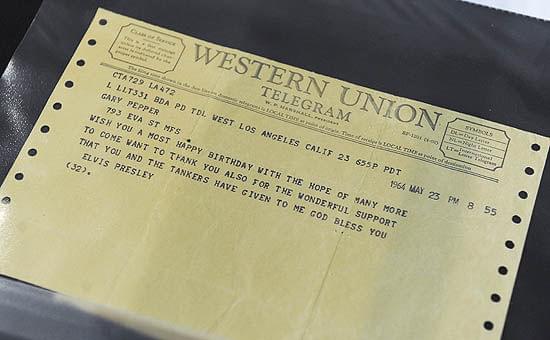 CLASS OF SERVICE
This is a fast message
unless its deferred character is indicated by the
proper symbol.
WESTERN UNION
TELEGRAM
W. P. MARSHALL, PRESIDENT
SYMBOLS
DL=Day Letter
NL=Night Letter
LT=International Letter Telegram
The filing time shown in the date line on domestic telegrams is LOCAL TIME at point of origin. Time of receipt is LOCAL TIME at point of destination
CTA729 LA472
L LLT331 BDA PD TDL WEST LOS ANGELES CALIF 23 655P PDT
GARY PEPPER
1964 MAY 23 PM 8 55
793 EVA ST MFS
WISH YOU A MOST HAPPY BIRTHDAY WITH THE HOPE OF MANY MORE
TO COME WANT TO THANK YOU ALSO FOR THE WONDERFUL SUPPORT
THAT YOU AND THE TANKERS HAVE GIVEN TO ME GOD BLESS YOU
ELVIS PRESLEY
(32).